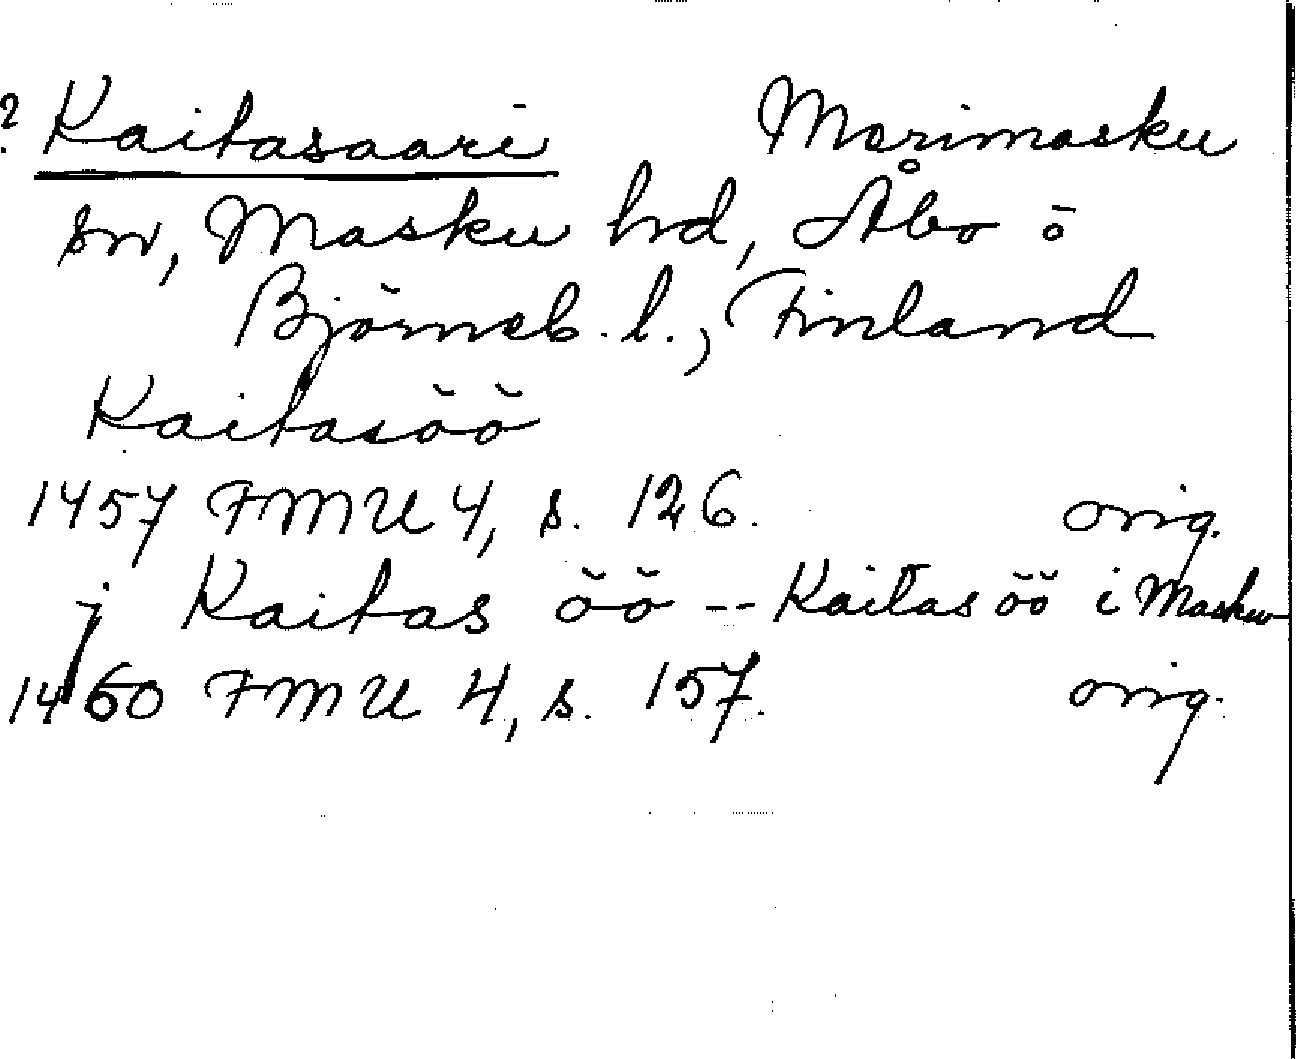 ? Kaitasaari Merimasku
sn, Masku hd, Åbo o
Björneb. l., Finland
Kaitasöö
1457 FMU 4, s. 126. orig.
j Kaitas öö -- Kaitas öö i Masku
1460 FMU 4, s. 157. orig.